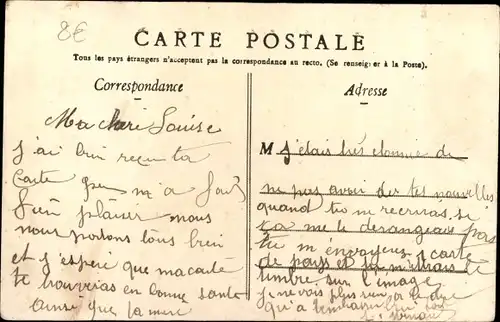 8€
CARTE POSTALE
Tous les pays étrangers n'acceptent pas la correspondance au recto. (Se renseigner à la Poste).
Correspondance
Adresse
Ma chere Louise
j'ai bien reçu ta
carte qui m'a fait
un plaisir nous
nous portons tous bien
et j'espère que ma carte
te trouveras en bonne santé
ainsi que ta mere
M j'etais très etonnée de
ne pas avoir de tes nouvelles
quand tu m recriras si
ca me le derangeais pas
tu m'envoyer carte
de pays et tu mettrais le
timbre sur l'image
je ne vois plus rien a te dire
qu'a t'embrasser